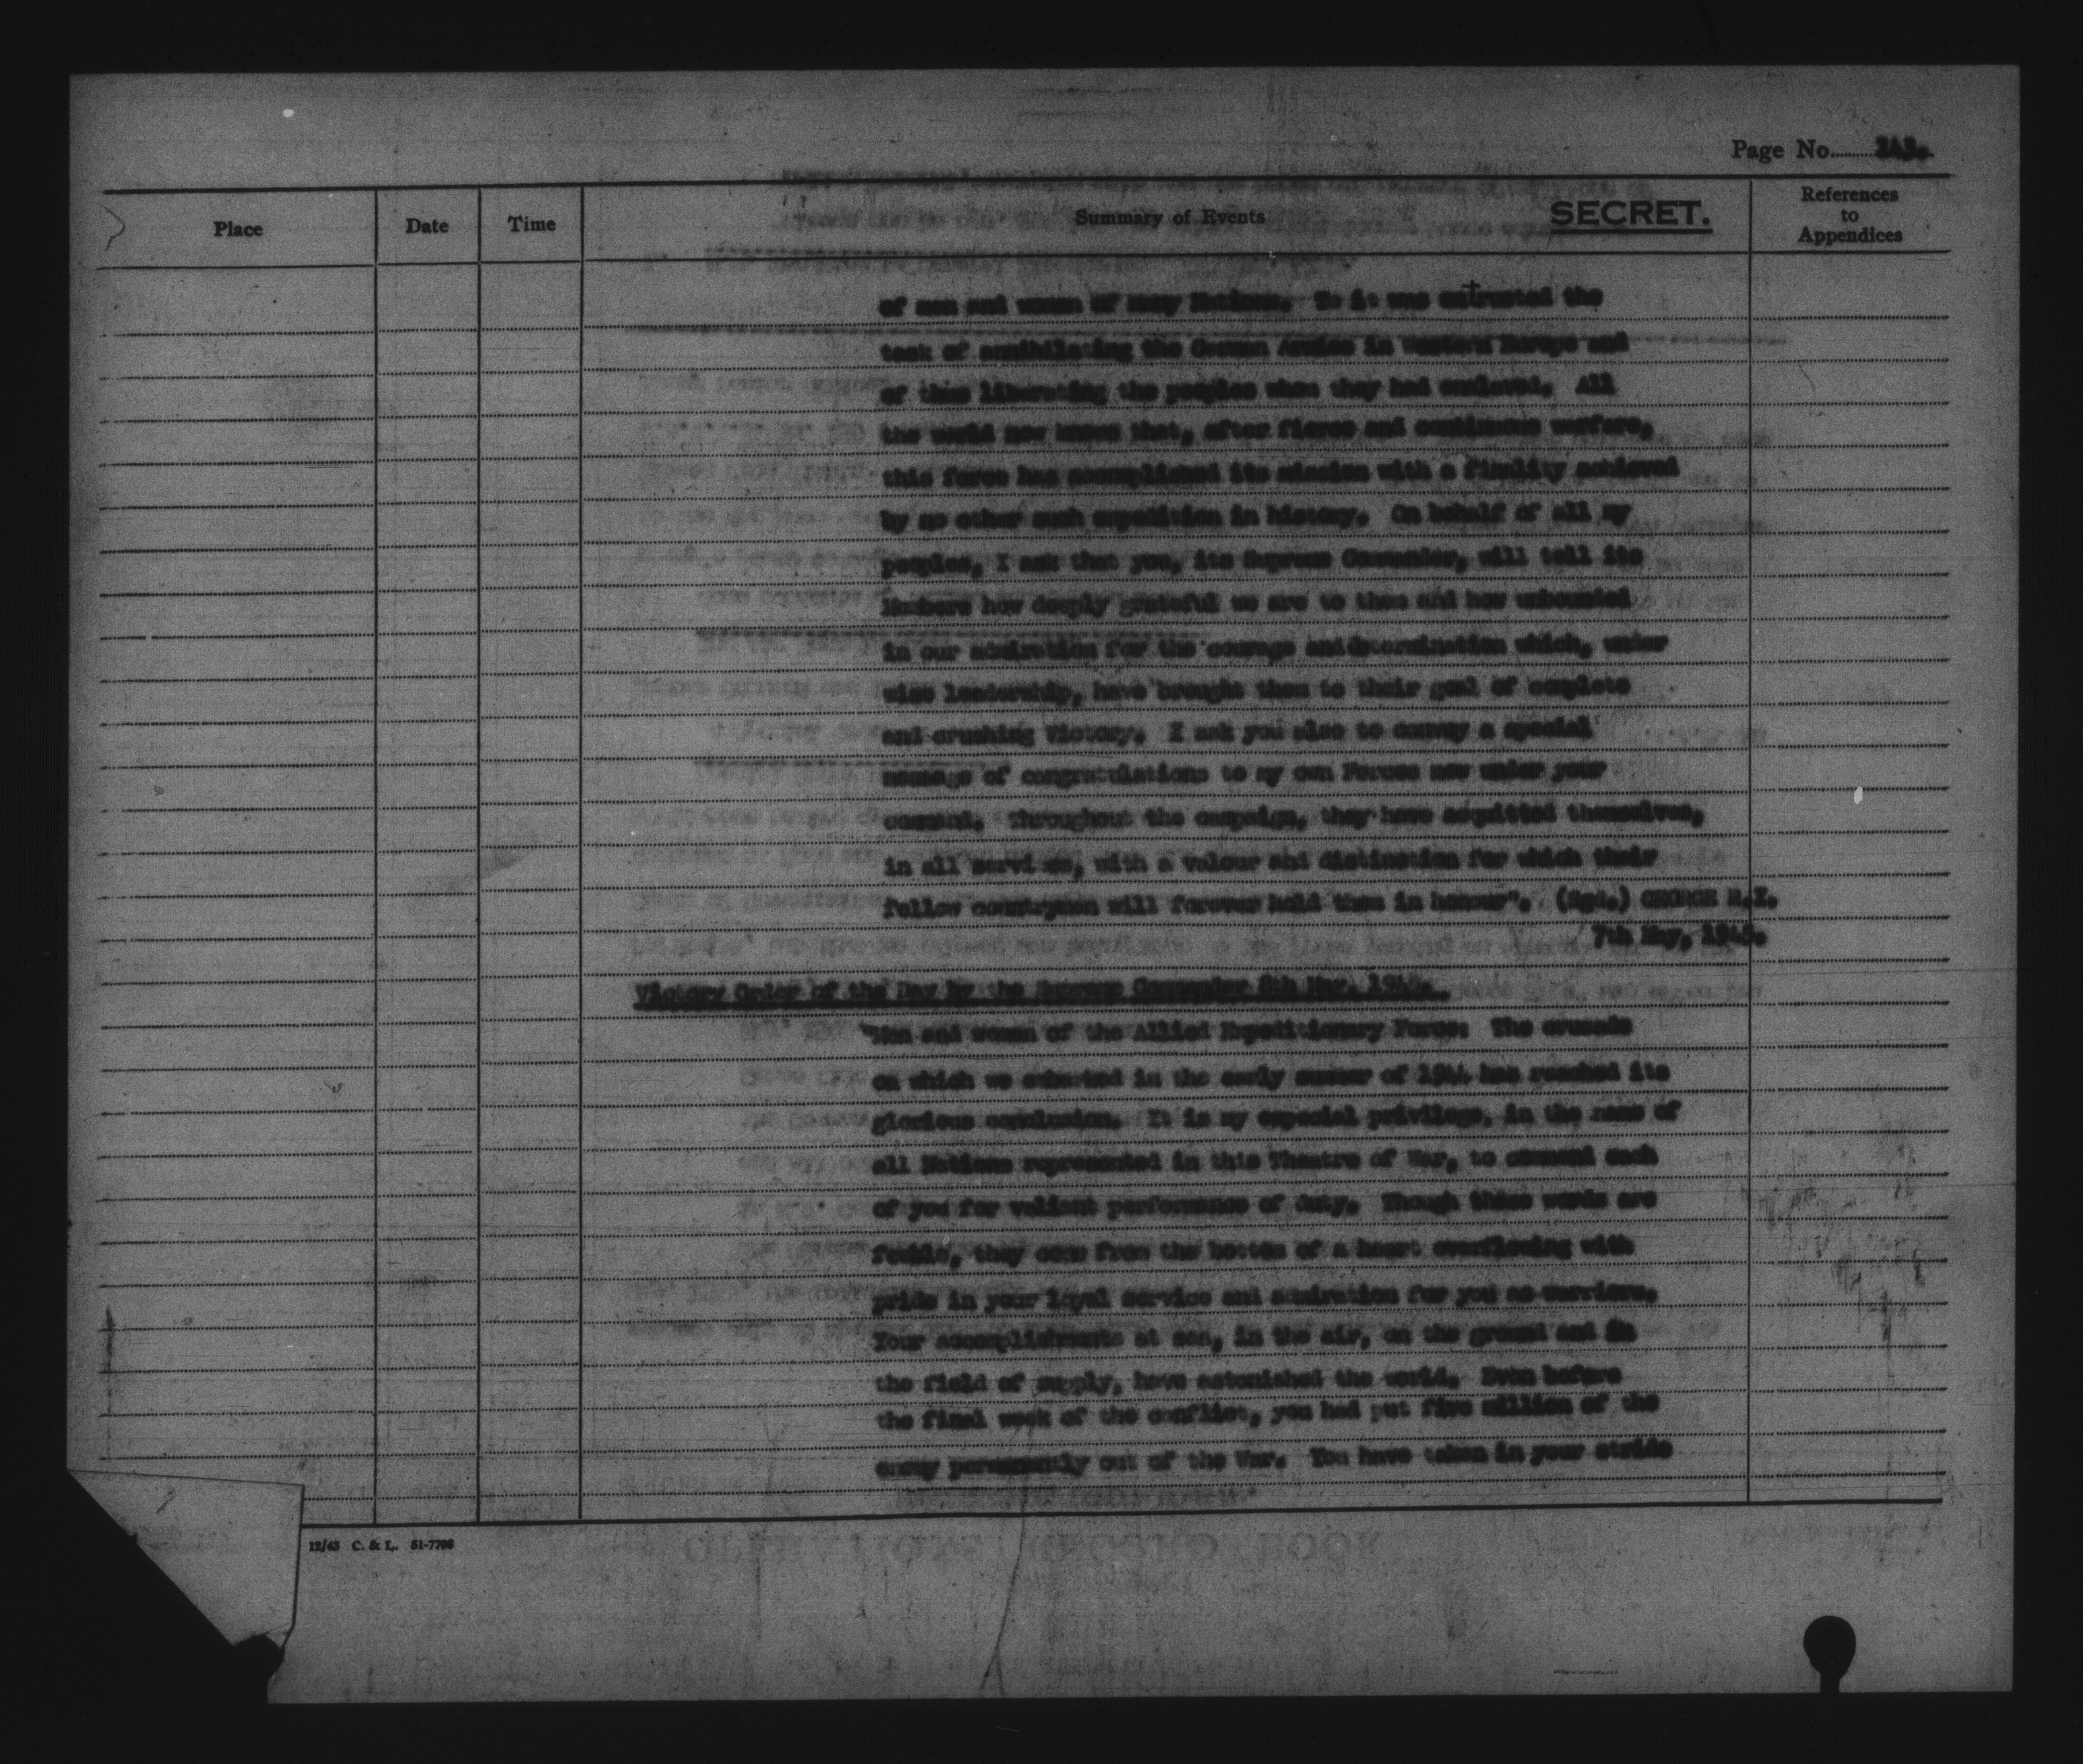 Page No.
Place Date Time Summary of Events SECRET. References to Appendices
of men and women of many Nations. To it was entrusted the
task of annihilating the German Armies in Western Europe and
of thus liberating the peoples whom they had enslaved. All
the world now knows that, after fierce and continuous warfare,
this force has accomplished its mission with a finality achieved
by no other such expedition in history. On behalf of all my
peoples, I ask that you, its Supreme Commander, will tell its
Members how deeply grateful we are to them and how unbounded
in our admiration for the courage and determination which, under
wise leadership, have brought them to their goal of complete
and crushing Victory. I ask you also to convey a special
message of congratulations to my own Forces now under your
command. Throughout the campaign, they have acquitted themselves,
in all services, with a valour and distinction for which their
fellow countrymen will forever hold them in honour". (Sgd.) GEORGE R.I.
7th May, 1945.
Victory Order of the Day by the Supreme Commander 8th May, 1945.
"Men and women of the Allied Expeditionary Force: The crusade
on which we embarked in the early summer of 1944 has reached its
glorious conclusion. It is my especial privilege, in the name of
all Nations represented in this Theatre of War, to commend each
of you for valiant performance of duty. Though these words are
feeble, they come from the bottom of a heart overflowing with
pride in your loyal service and admiration for you as warriors.
Your accomplishments at sea, in the air, on the ground and in
the field of supply, have astonished the world. Even before
the final week of the conflict, you had put five million of the
enemy permanently out of the War. You have taken in your stride
12/43 C. & L. 51-7706